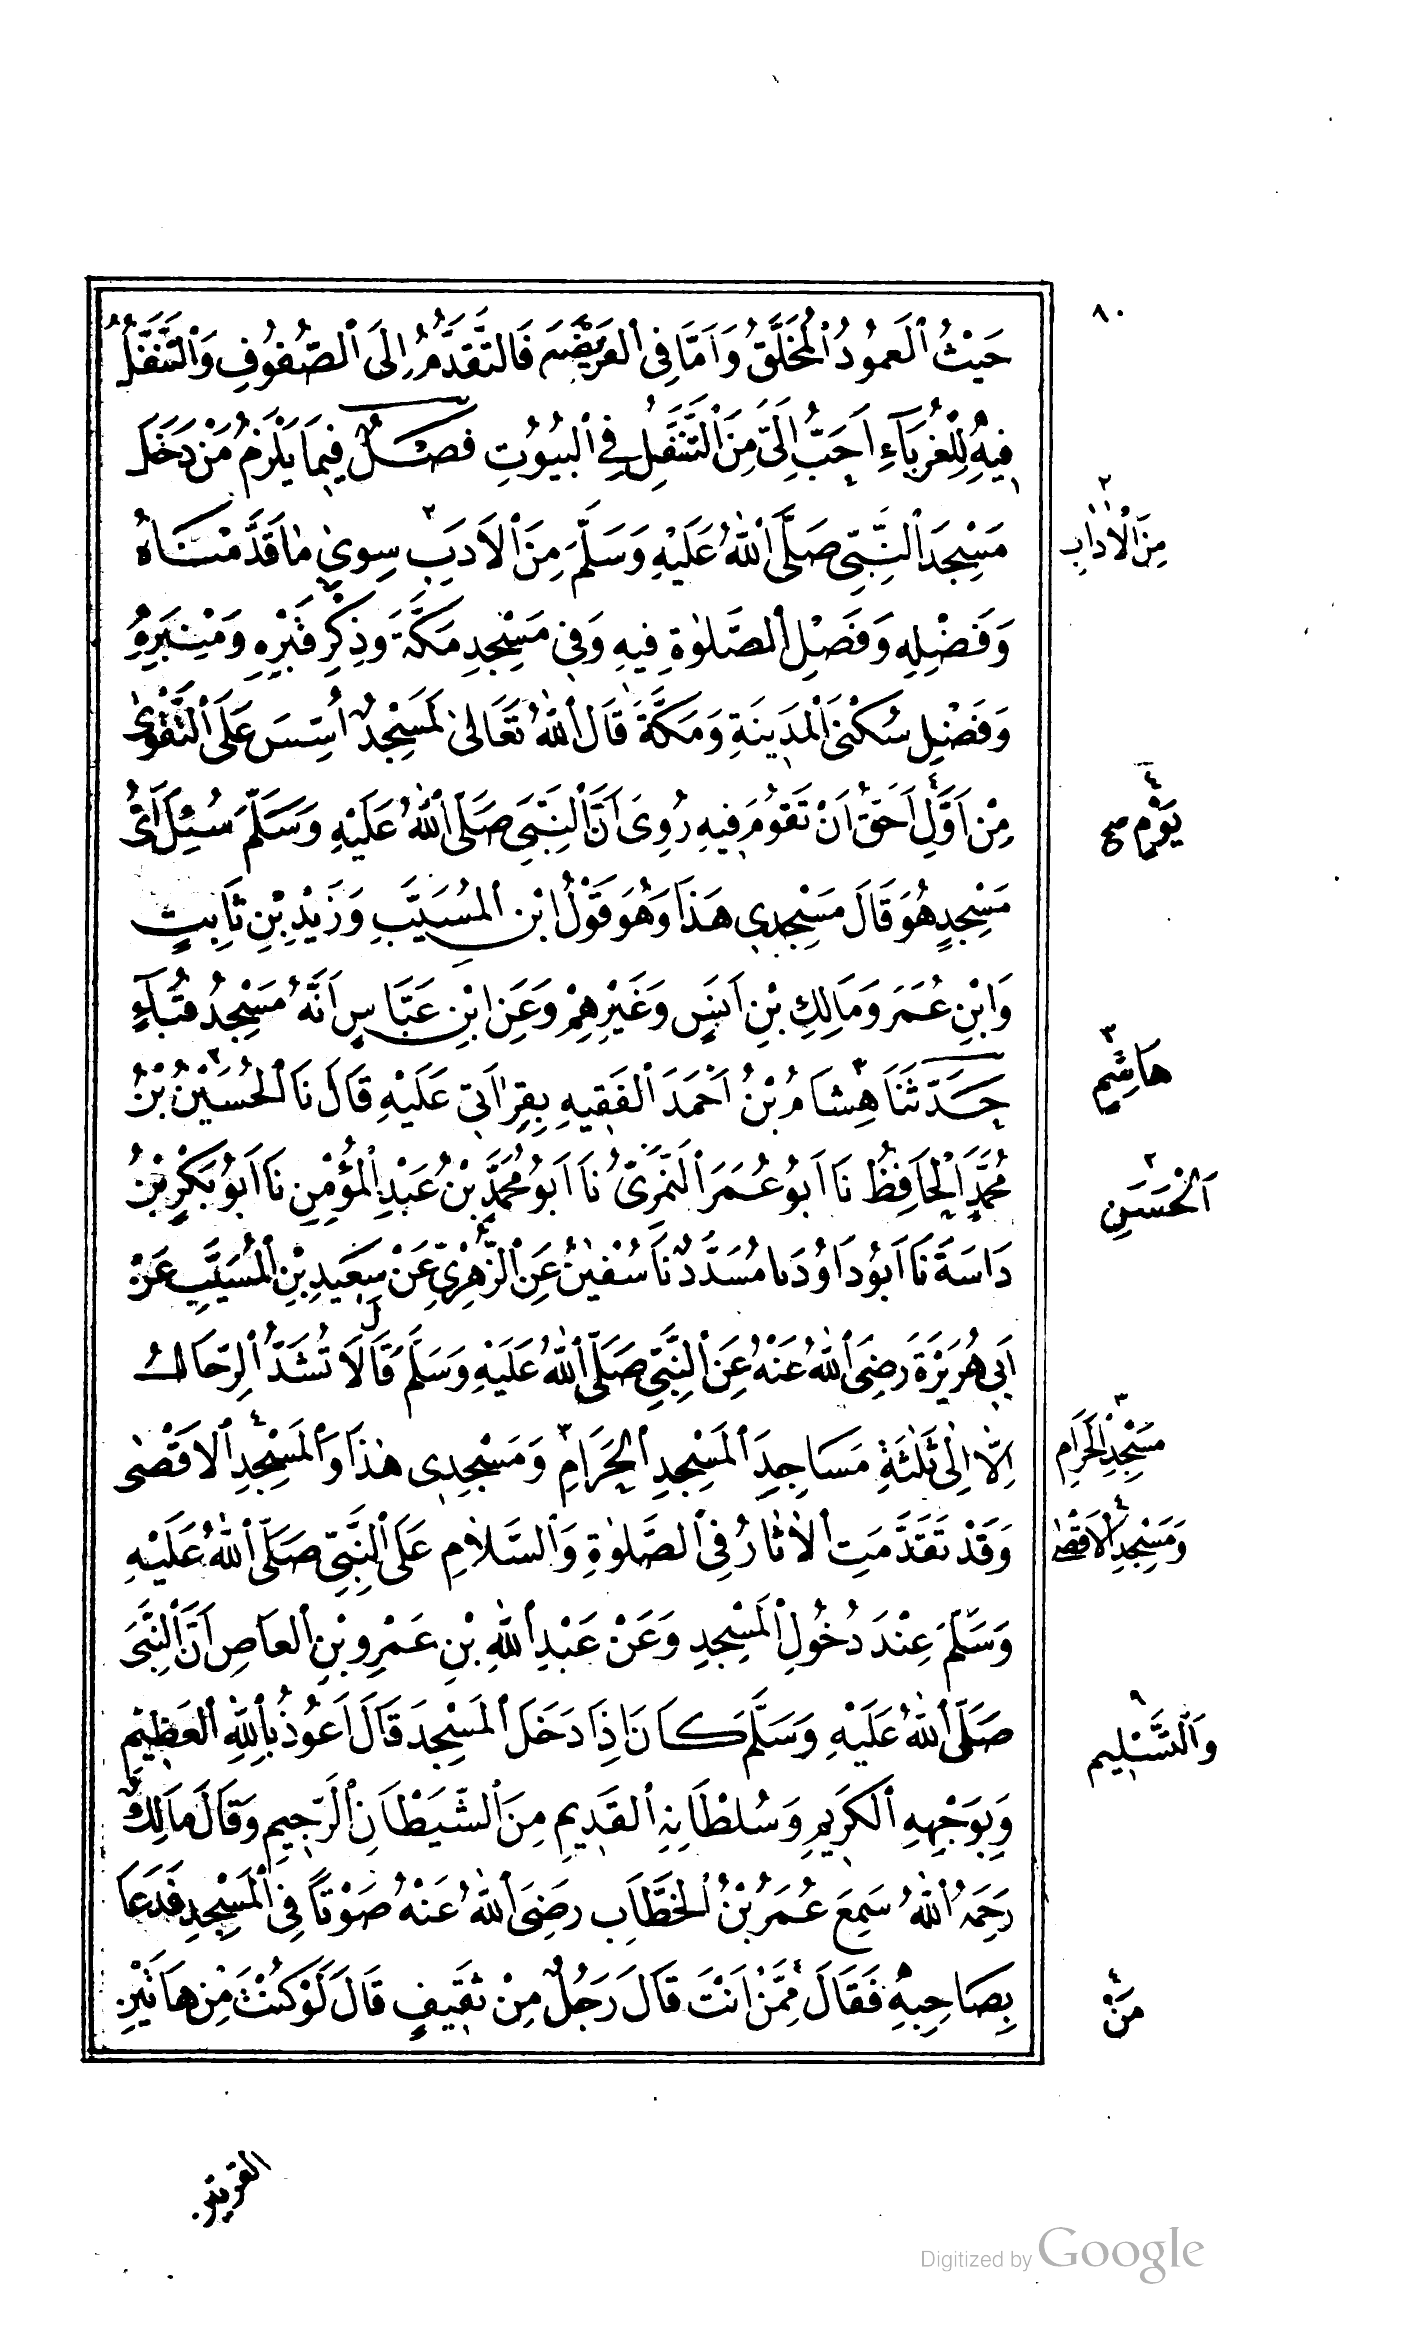 ٨٠
حَيْثُ الْعَمُودُ الْمُخَلَّقُ وَاَمَّا فِى الْفَرِيضَةِ فَالتَّقَدُّمُ اِلَى الصُّفُوفِ وَالتَّنَفُّلُ
فِيهِ لِلْغُرَبَآءِ اَحَبُّ اِلَىَّ مِنَ التَّنَفُّلِ فِى الْبُيُوتِ فَصْلٌ فِيمَا يَلْزَمُ مَنْ دَخَلَ
مَسْجِدَ النَّبِىِّ صَلَّى اللّٰهُ عَلَيْهِ وَسَلَّمَ مِنَ الْاَدَبِ ٢ سِوٰى مَا قَدَّمْنَاهُ
مِنَ الْاٰدَابِ ٢
وَفَضْلِهِ وَفَضْلِ الصَّلٰوةِ فِيهِ وَفِى مَسْجِدِ مَكَّةَ وَذِكْرِ قَبْرِهِ وَمِنْبَرِهِ
وَفَضْلِ سُكْنَى الْمَدِينَةِ وَمَكَّةَ قَالَ اللّٰهُ تَعَالٰى لَمَسْجِدٌ اُسِّسَ عَلَى التَّقْوٰى
مِنْ اَوَّلِ ٤ اَحَقُّ اَنْ تَقُومَ فِيهِ رُوِىَ اَنَّ النَّبِىَّ صَلَّى اللّٰهُ عَلَيْهِ وَسَلَّمَ سُئِلَ اَىُّ
يَوْمٍ صح ٤
مَسْجِدٍ هُوَ قَالَ مَسْجِدِى هَذَا وَهُوَ قَوْلُ ابْنِ الْمُسَيَّبِ وَزَيْدِ بْنِ ثَابِتٍ
وَابْنِ عُمَرَ وَمَالِكِ بْنِ اَنَسٍ وَغَيْرِهِمْ وَعَنِ ابْنِ عَبَّاسٍ اَنَّهُ مَسْجِدُ قُبَآءٍ
حَدَّثَنَا هِشَامُ ٣ بْنُ اَحْمَدَ الْفَقِيهِ بِقِرَاَتِى عَلَيْهِ قَالَ نَا الْحُسَيْنُ ٢ بْنُ
هَاشِمُ ٣
مُحَمَّدٍ الْحَافِظُ نَا اَبُو عُمَرَ النَّمَرِىُّ نَا اَبُو مُحَمَّدِ بْنُ عَبْدِ الْمُؤْمِنِ نَا اَبُو بَكْرِ بْنُ
اَلْحَسَنِ ٢
دَاسَةَ نَا اَبُو دَاوُدَ نا مُسَدَّدٌ نَا سُفْيٰنُ عَنِ الزُّهْرِىِّ عَنْ سَعِيدِ بْنِ الْمُسَيَّبِ عَنْ
اَبِى هُرَيْرَةَ رَضِىَ اللّٰهُ عَنْهُ عَنِ النَّبِىِّ صَلَّى اللّٰهُ عَلَيْهِ وَسَلَّمَ قَالَ لَا تُشَدُّ الرِّحَالُ
اِلَّا اِلٰى ثَلٰثَةِ مَسَاجِدَ الْمَسْجِدِ الْحَرَامِ ٣ وَمَسْجِدِى هٰذَا وَالْمَسْجِدِ ٤ الْاَقْصٰى
مَسْجِدِ الْحَرَامِ ٣
وَقَدْ تَقَدَّمَتِ الْاٰثَارُ فِى الصَّلٰوةِ وَالسَّلَامِ عَلَى النَّبِىِّ صَلَّى اللّٰهُ عَلَيْهِ
وَمَسْجِدِ الْاَقْصٰى ٤
وَسَلَّمَ عِنْدَ دُخُولِ الْمَسْجِدِ وَعَنْ عَبْدِ اللّٰهِ بْنِ عَمْرِو بْنِ الْعَاصِ اَنَّ النَّبِىَّ
صَلَّى اللّٰهُ عَلَيْهِ وَسَلَّمَ كَانَ اِذَا دَخَلَ الْمَسْجِدَ قَالَ اَعُوذُ بِاللّٰهِ الْعَظِيمِ
وَالتَّسْلِيمِ ٩
وَبِوَجْهِهِ الْكَرِيمِ وَسُلْطَانِهِ الْقَدِيمِ مِنَ الشَّيْطَانِ الرَّجِيمِ وَقَالَ مَالِكٌ
رَحِمَهُ اللّٰهُ سَمِعَ عُمَرُ بْنُ الْخَطَّابِ رَضِىَ اللّٰهُ عَنْهُ صَوْتًا فِى الْمَسْجِدِ فَدَعَا
بِصَاحِبِهِ فَقَالَ مِمَّنْ ٤ اَنْتَ قَالَ رَجُلٌ مِنْ ثَقِيفٍ قَالَ لَوْ كُنْتَ مِنْ هَاتَيْنِ
مَنْ ٤
القريتين
Digitized by Google